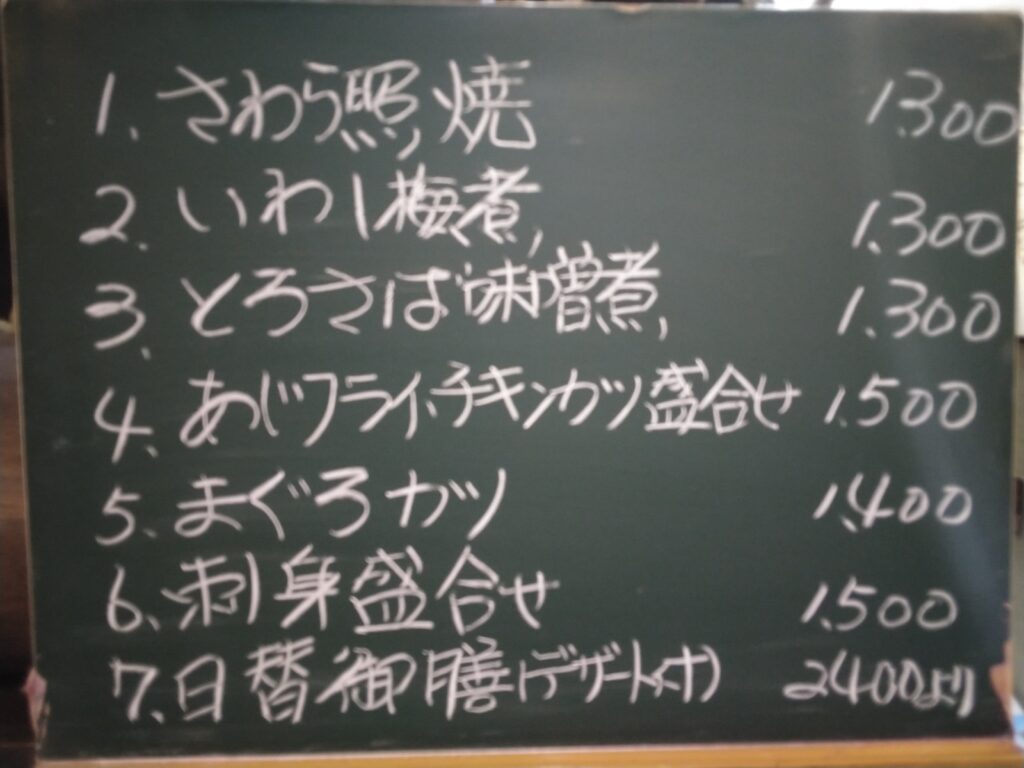 1. さわら照焼 1.300
2. いわし梅煮 1.300
3. とろさば味噌煮 1.300
4. あじフライ、チキンカツ盛合せ 1.500
5. まぐろカツ 1.400
6. 刺身盛合せ 1.500
7. 日替御膳(デザート付) 2400より